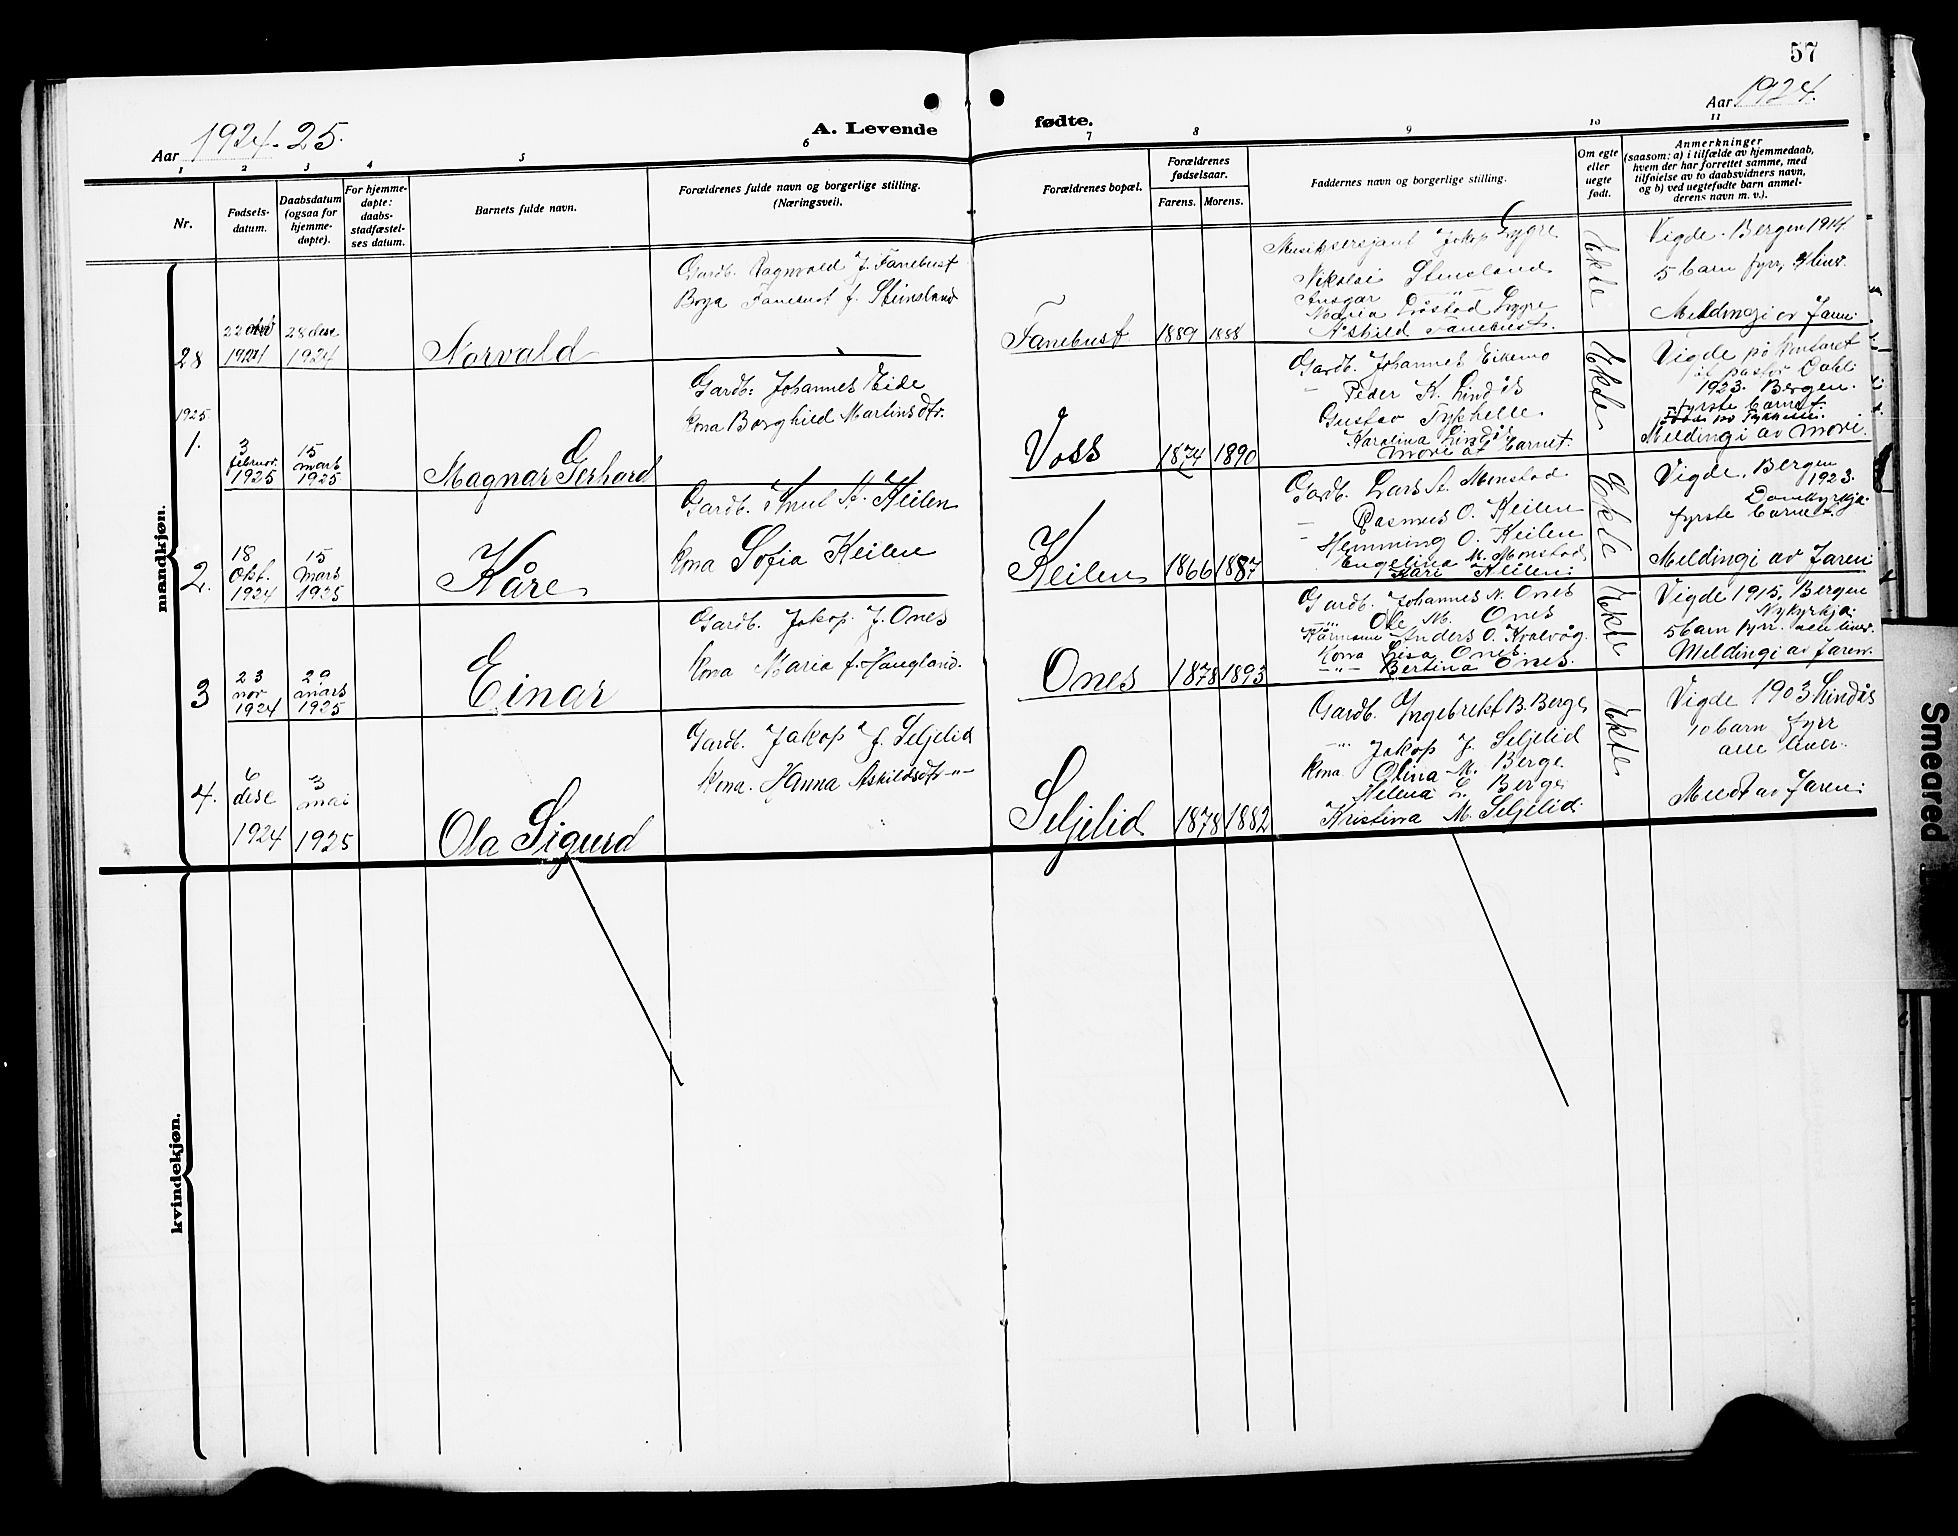 57
Aar 1924-25.
A. Levende
fødte.
Aar 1924.
1 2 3 4 5 6 7 8 9 10 11
Nr.
Fødsels-
datum.
Daabsdatum
(ogsaa for
hjemme-
døpte).
For hjemme-
døpte:
daabs-
stadfæstel-
ses datum.
Barnets fulde navn.
Forældrenes fulde navn og borgerlige stilling.
(Næringsvei).
Forældrenes bopæl.
Forældrenes
fødselsaar.
Farens. Morens.
Faddernes navn og borgerlige stilling.
Om egte
eller
uegte
født.
Anmerkninger
(saasom: a) i tilfælde av hjemmedaab,
hvem der har forrettet samme, med
tilføielse av to daabsvidners navn,
og b) ved uegtefødte barn anmel-
derens navn m. v.).
mandkjøn.
28
22
1924
28 dese
1924
Norvald
Gardb. Ragnvald J. Fanebust
Fanebust f. Steinsland
Fanebust
1889
1888
Musiksersjant Jakop Lygre
Nikolai Steinsland
Ansgar -"-
Maria Lygre
Åshild Fanebust.
Ekte
Vigde. Bergen 1914
5 barn fyrr, 4 liver.
Meldingi av faren.
1925
1.
3
februar
1925
15
mars
1925
Magnar Gerhard
Gardb: Johannes Eide
kona Borghild Martinsdtr.
Voss
1874
1890
Gardb. Johannes Eikemo
- Peder K. Lindås
Gustav Tykhelle
Karolina Lindås
Mori at barnet.
Ekte
Vigde på kontoret
åt pastor Dahl
1923. Bergen.
fyrste barnet.
Meldingi av mori.
2.
18
Okt.
1924
15
Mars
1925
Kåre
Gardb. Knut A. Keilen
kona Sofia Keilen
Keilen
1866
1887
Gardb. Lars A. Monstad
- Rasmus O. Keilen
- Hemming O. Keilen
Engelina M. Monstad
Kari Keilen.
Ekte
Vigde. Bergen
1923.
Domkyrkja.
fyrste barnet.
Meldingi av faren
3
23
nov
1924
29
mars
1925
Einar
Gardb. Jakop J. Ones
kona Maria f. Haugland.
Ones
1878
1893
Gardb. Johannes N. Ones
-"- Ole M. Ones
Anders O. Kvalvåg
Kona Lisa Ones.
-"- Bertina Ones.
Ekte
Vigde 1915, Bergen
Nykyrkja.
5 barn fyrr. alle liver.
Meldingi av faren.
4.
6
dese
1924
3
mai
1925
Ola Sigurd
Gardb. Jakop J. Seljelid
kona. Hanna Askildsdtr -"-
Seljelid
1878
1882
Gardb. Ingebrekt B. Berge
-"- Jakop J. Seljelid
kona Olina M. Berge
Helena L. Berge
Kristina M. Seljelid.
Ekte
Vigde 1903 Lindås
10 barn fyrr
alle liver.
Meldt av faren.
kvindekjøn.
Smeared